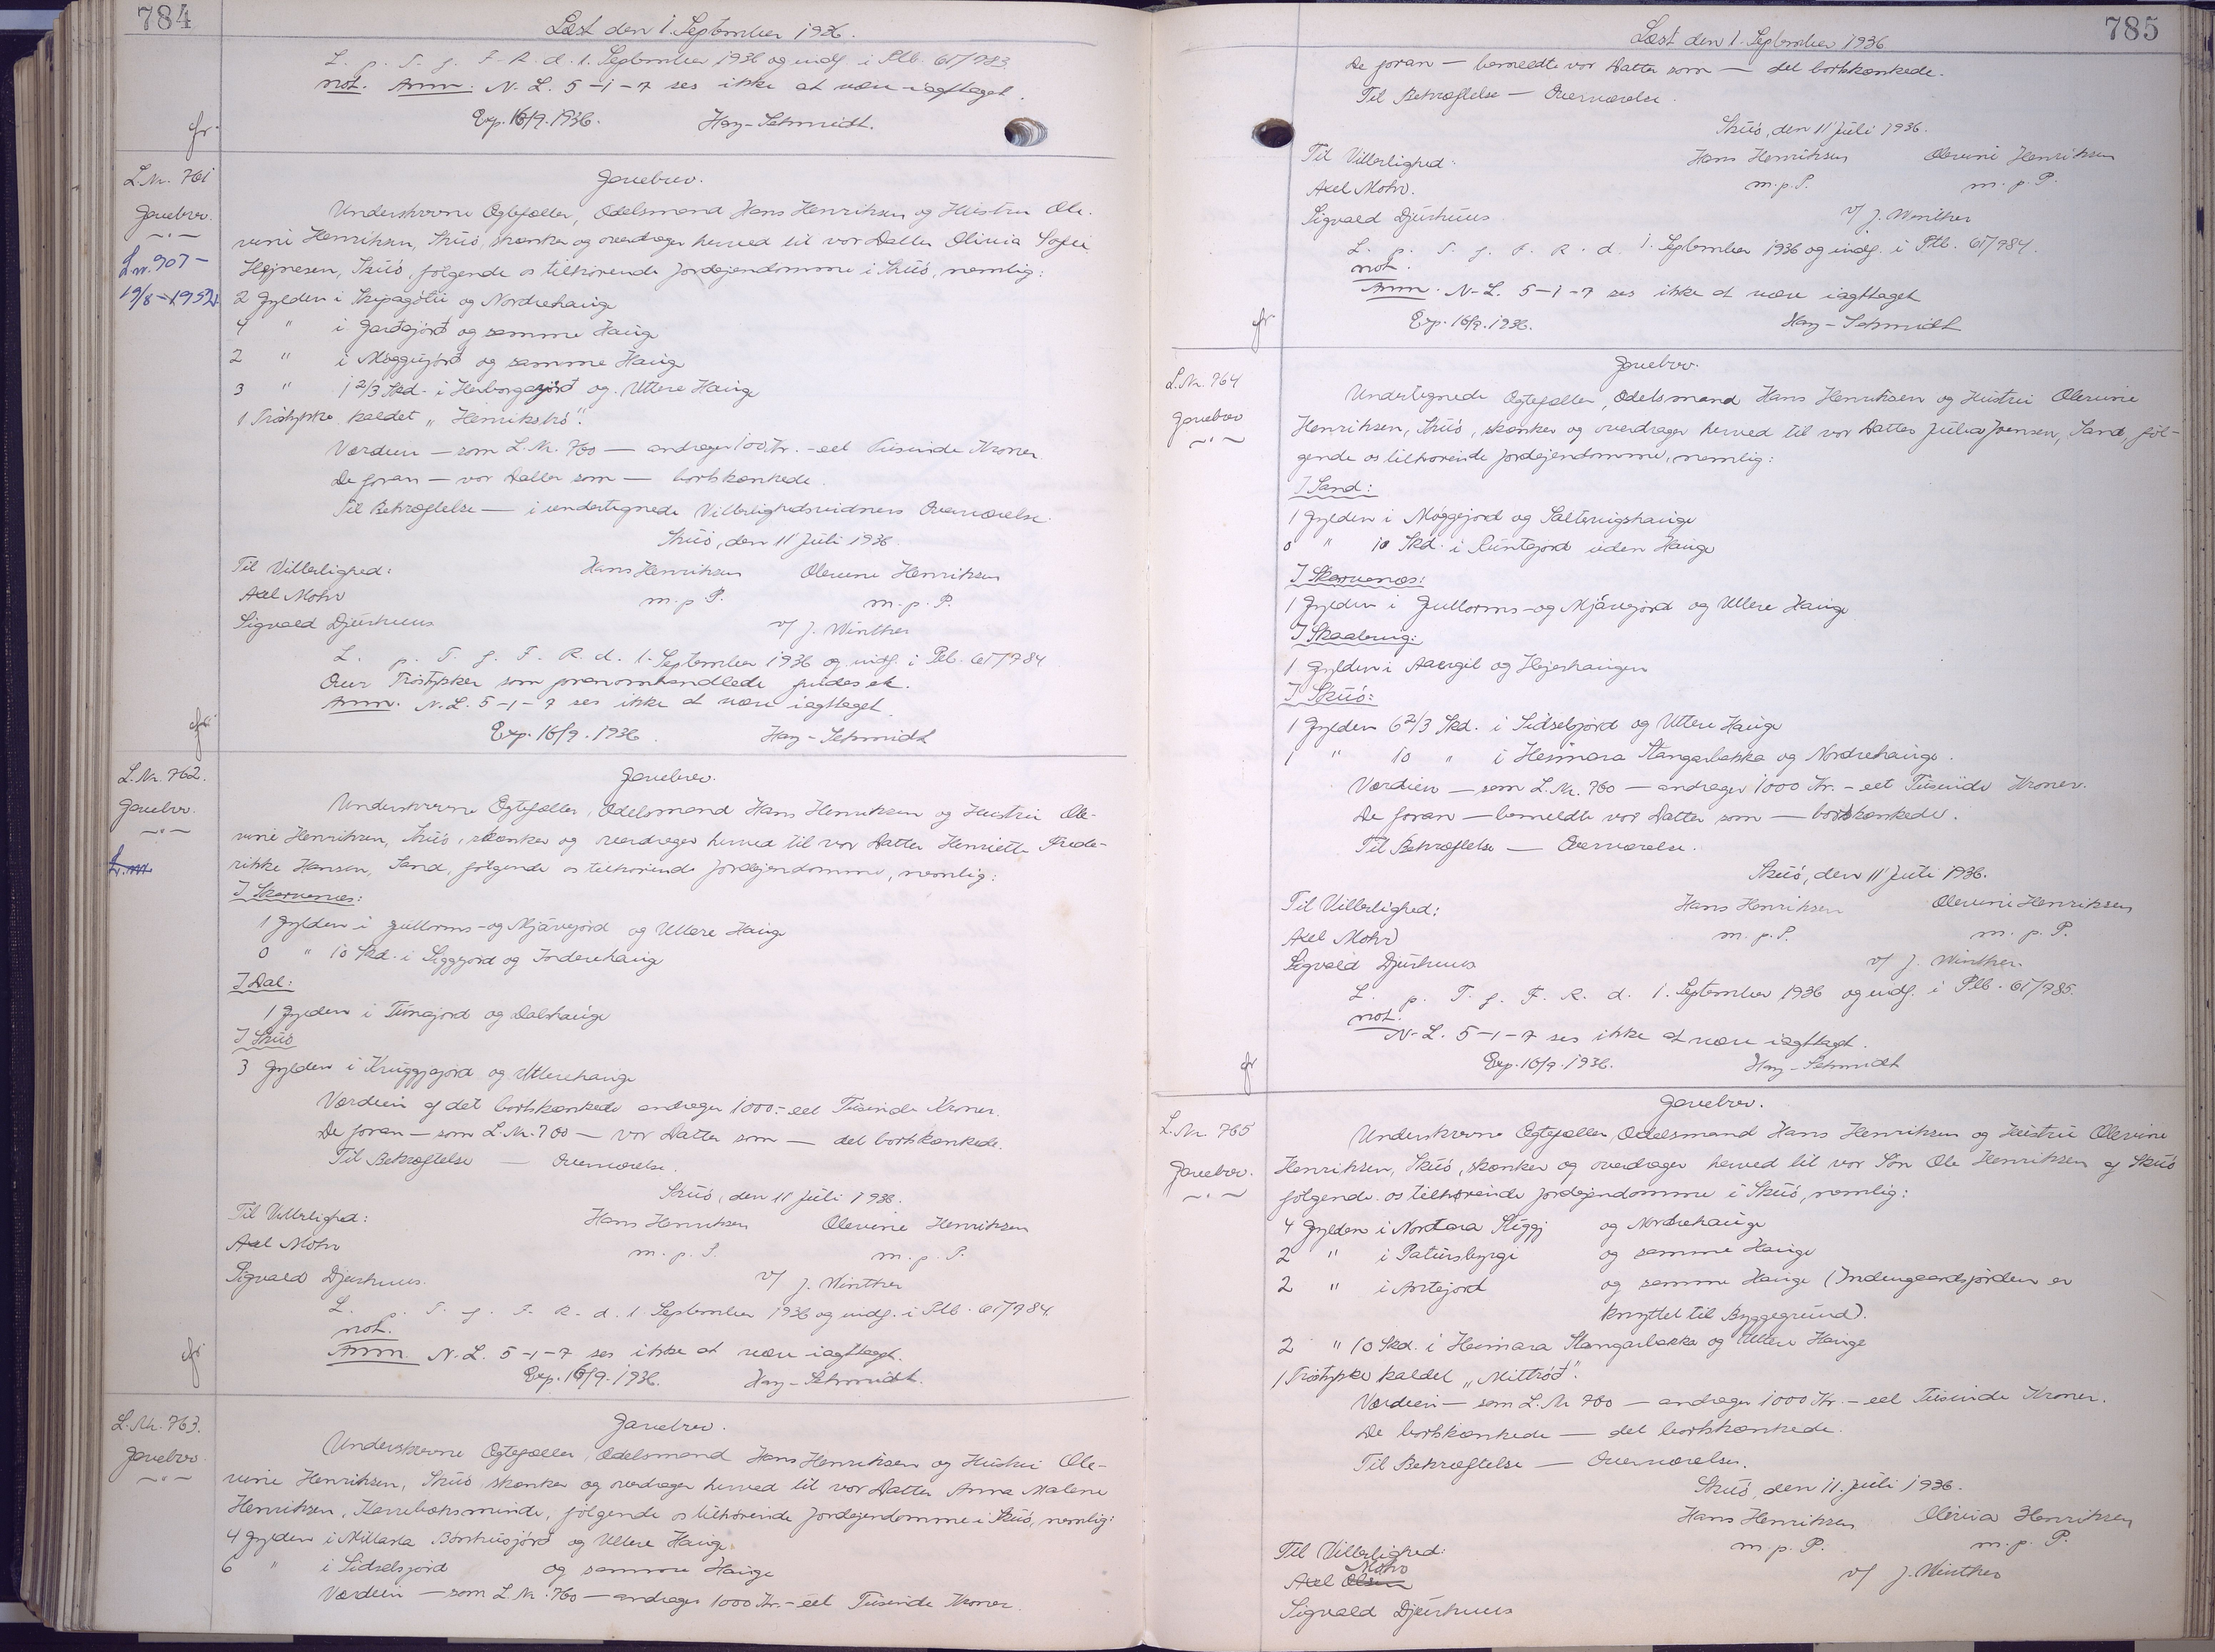 784
Læst den 1. September 1936.
L. p. T. f. F. R. d. 1. September 1936 og indf. i Ptb. 61/783.
not. Anm: N. L. 5-1-7 ses ikke at være iagttaget.
Exp. 16/9. 1936. Hay-Schmidt.
L.Nr. 761
Gavebrev.
L nr. 907-
19/8-1952
Gavebrev.
Underskrevne Ægtefæller, Odelsmand Hans Henriksen og Hustru Ole-
vine Henriksen, Skúø, skænker og overdrager herved til vor Datter Olivia Sofie
Højnesen, Skúø, følgende os tilhørende Jordejendomme i Skúø, nemlig:
2 Gylden i Skipagøtu og Nordrehauge
4 " i Gardsjørd og samme Hauge
2 " i Møggujørd og samme Hauge
3 " 1 2/3 Skd. i Herborgajørd og Uttere Hauge
1 Trøstykke kaldet „Henrikstrø".
Værdien — som L. Nr. 760 — andrager 1000 Kr. - eet Tusinde Kroner.
De foran — vor Datter som — bortskænkede.
Til Bekræftelse — i undertegnede Vitterlighedsvidners Overværelse.
Skúø, den 11 Juli 1936.
Til Vitterlighed: Hans Henriksen Olevine Henriksen
Axel Mohr m. p. P. m. p. P.
Sigvald Djurhuus v/ J. Winther
L. p. T. f. F. R. d. 1. September 1936 og indf. i Ptb. 61/784
Over Trøstykker som foranomhandlede findes ek.
Anm. N. L. 5-1-7 ses ikke at være iagttaget.
Exp. 16/9. 1936. Hay-Schmidt
L. Nr. 762.
Gavebrev.
L. nr.
Gavebrev.
Underskrevne Ægtefæller, Odelsmand Hans Henriksen og Hustru Ole-
vine Henriksen, Skúø, skænker og overdrager herved til vor Datter Henriette Frede-
rikke Hansen, Sand, følgende os tilhørende Jordejendomme, nemlig:
I Skarvenæs:
1 Gylden i Gullorms- og Mjávajørd og Uttere Hauge
0 " 10 Skd. i Siggjord og Forderehauge
I Dal:
1 Gylden i Túnajord og Dalshauge
I Skúø
3 Gylden i Kruggjajord og Utterehauge
Værdien af det bortskænkede andrager 1000.- eet Tusinde Kroner.
De foran — som L. Nr. 760 — vor Datter som — det bortskænkede.
Til Bekræftelse — Overværelse.
Skúø, den 11 Juli 1936.
Til Vitterlighed: Hans Henriksen Olevine Henriksen
Axel Mohr m. p. P. m. p. P.
Sigvald Djurhuus. v/ J. Winther
L. p. T. f. F. R. d. 1 September 1936 og indf. i Ptb. 61/784.
not.
Anm. N. L. 5-1-7 ses ikke at være iagttaget.
Exp. 16/9. 1936. Hay-Schmidt.
L. Nr. 763.
Gavebrev
Gavebrev.
Underskrevne Ægtefæller, Odelsmand Hans Henriksen og Hustru Ole-
vine Henriksen, Skúø, skænker og overdrager herved til vor Datter Anna Malene
Henriksen, Karrebæksminde, følgende os tilhørende Jordejendomme i Skúø, nemlig:
4 Gylden i Mittasta Bønhusjørd og Uttere Hauge
6 " i Sidselsjord og samme Hauge
Værdien — som L. Nr. 760 — andrager 1000 Kr. - eet Tusinde Kroner.
785
Læst den 1. September 1936
De foran — bemeldte vor Datter som — det bortskænkede.
Til Bekræftelse — Overværelse.
Skúø, den 11 Juli 1936.
Til Vitterlighed: Hans Henriksen Olevine Henriksen
Axel Mohr. m. p. P. m. p. P.
Sigvald Djurhuus. v/ J. Winther
L. p. T. f. F. R. d. 1. September 1936 og indf. i Ptb. 61/784.
not.
Anm. N. L. 5-1-7 ses ikke at være iagttaget
Exp. 16/9. 1936. Hay-Schmidt
L. Nr. 764
Gavebrev
Gavebrev.
Undertegnede Ægtefæller, Odelsmand Hans Henriksen og Hustru Olevine
Henriksen, Skúø, skænker og overdrager herved til vor Datter Julia Joensen, Sand, føl-
gende os tilhørende Jordejendomme, nemlig:
I Sand:
1 Gylden i Møggejord og Saltuvigshauge
0 " 10 Skd. i Runtajord uden Hauge
I Skarvenæs:
1 Gylden i Gullorms- og Mjávajord og Uttere Hauge
I Skaalevig:
1 Gylden i Aaargil og Højeshaugen
I Skúø:
1 Gylden 6 2/3 Skd. i Sidselsjord og Uttere Hauge
1 " 10 " i Heimara Stangarbakka og Nordrehauge.
Værdien — som L. Nr. 760 — andrager 1000 Kr. - eet Tusinde Kroner.
De foran — bemeldte vor Datter som — bortskænkede.
Til Bekræftelse — Overværelse.
Skúø, den 11 Juli 1936.
Til Vitterlighed: Hans Henriksen Olevine Henriksen
Axel Mohr m. p. P. m. p. P.
Sigvald Djurhuus v/ J. Winther.
L. p. T. f. F. R. d. 1. September 1936 og indf. i Ptb. 61/785.
not.
N. L. 5-1-7 ses ikke at være iagttaget.
Exp. 16/9. 1936. Hay-Schmidt
L. Nr. 765
Gavebrev.
Gavebrev.
Underskrevne Ægtefæller, Odelsmand Hans Henriksen og Hustru Olevine
Henriksen, Skúø, skænker og overdrager herved til vor Søn Ole Henriksen af Skúø
følgende os tilhørende Jordejendomme i Skúø, nemlig:
4 Gylden i Nortara Stiggj og Nordrehauge
2 " i Patursbyrgi og samme Hauge
2 " i Antajord og samme Hauge (Indengaardsjorden er
knyttet til Byggegrund).
2 " 10 Skd. i Heimara Stangarbakka og Uttere Hauge
1 Trøstykke kaldet „Mittrød".
Værdien — som L. Nr 760 — andrager 1000 Kr. - eet Tusinde Kroner.
De bortskænkede — det bortskænkede.
Til Bekræftelse — Overværelse.
Skúø, den 11. Juli 1936.
Hans Henriksen Olevia Henriksen
Til Vitterlighed: m. p. P. m. p. P.
Mohr
Axel Olsen v/ J. Winther
Sigvald Djurhuus